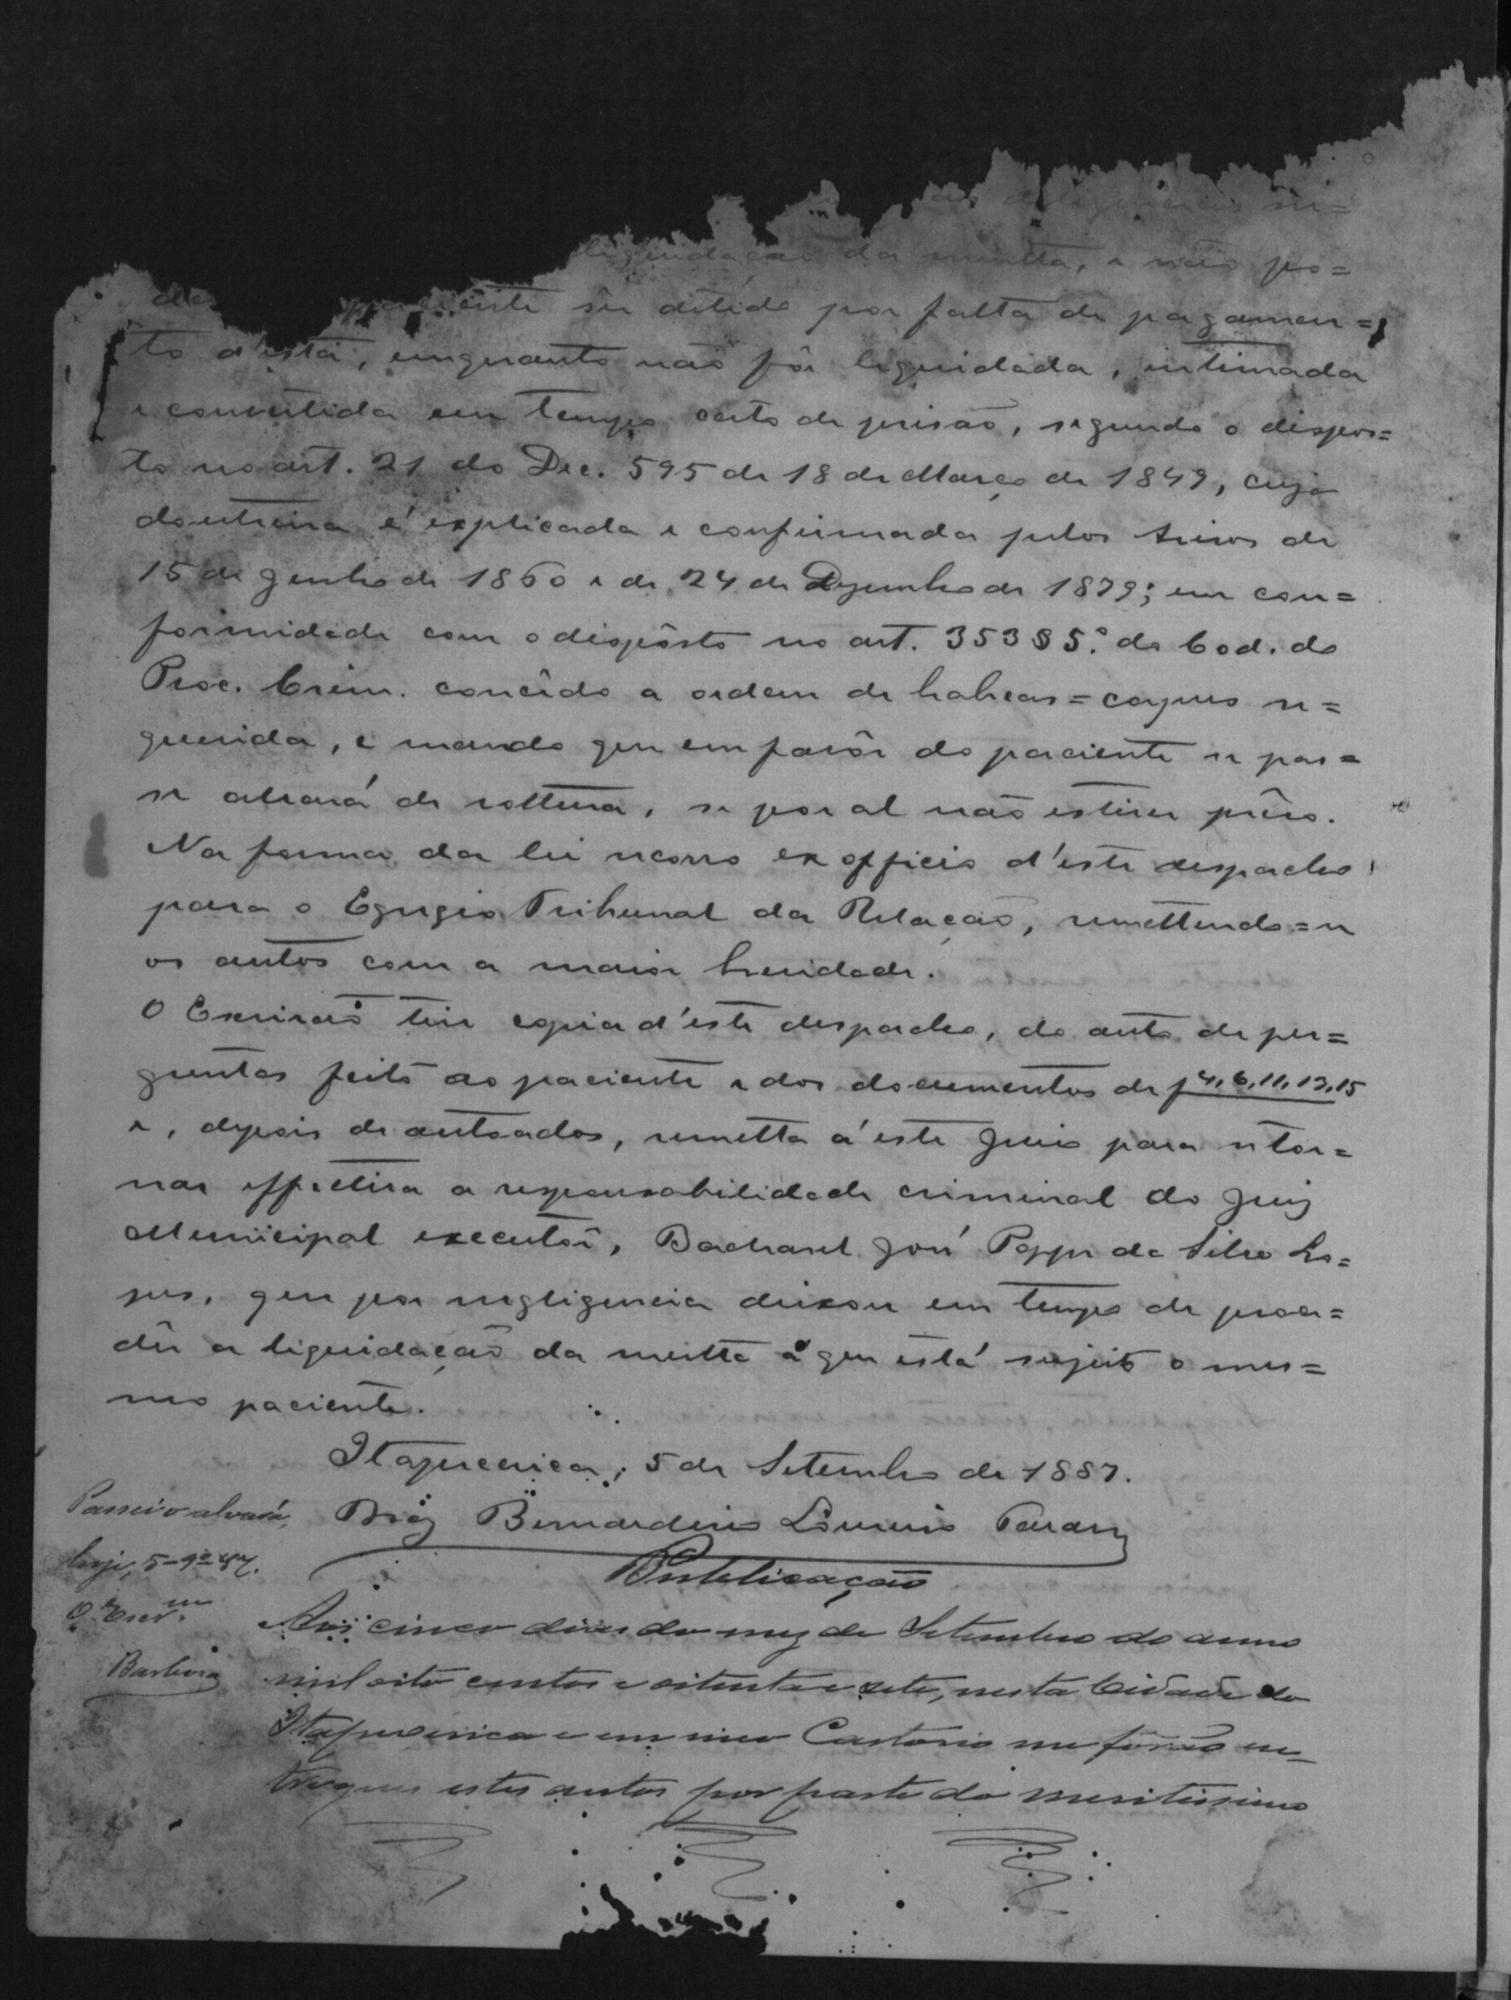 as deligencias ne=
liquidação da multa, e não po=
de paciente sêr detido por falta de pagamen=
to d'esta, emquanto não fôr liquidada, intimada
e convertida em tempo certo de prisão, segundo o dispos=
to no art. 21 do Dec. 595 de 18 de Março de 1849, cuja
doutrina é explicada e confirmada pelos Avisos de
15 de Junho de 1860 e de 24 de Dezembro de 1879; em con=
formidade com o dispôsto no art. 353 § 5.º do Cod. do
Proc. Crim. concêdo a ordem de habeas=corpus re=
querida, e mando que em favôr do paciente se pas=
se alvará de soltura, se por al não estiver prêso.
Na forma da lei recorro ex officio d'este despacho
para o Egregio Tribunal da Relação, remettendo=se
os autos com a maior brevidade.
O Escrivão tire copia d'este despacho, do auto de per=
guntas feito ao paciente e dos documentos de f 4, 6, 11, 12, 15
e, depois de autoados, remetta á este Juizo para se tor=
nar effectiva a responsabilidade criminal do Juiz
Municipal executôr, Bacharel José Poppe da Silva Lo=
pes, que por negligencia deixou em tempo de proce=
dêr a liquidação da multa á que está sujeito o mes=
mo paciente.
Itapecerica, 5 de Setembro de 1887.
Braz Bernardino Loureiro Tavares
Passei o alvará,
hoje, 5-9º-87.
O Escr.m
Barboza
Publicação
Aos cinco dias do mez de Setembro do anno
mil oito centos e oitenta e sete, nesta Cidade do
Itapecerica e em meu Cartorio me forão en=
tregues estes autos por parte do meritissimo